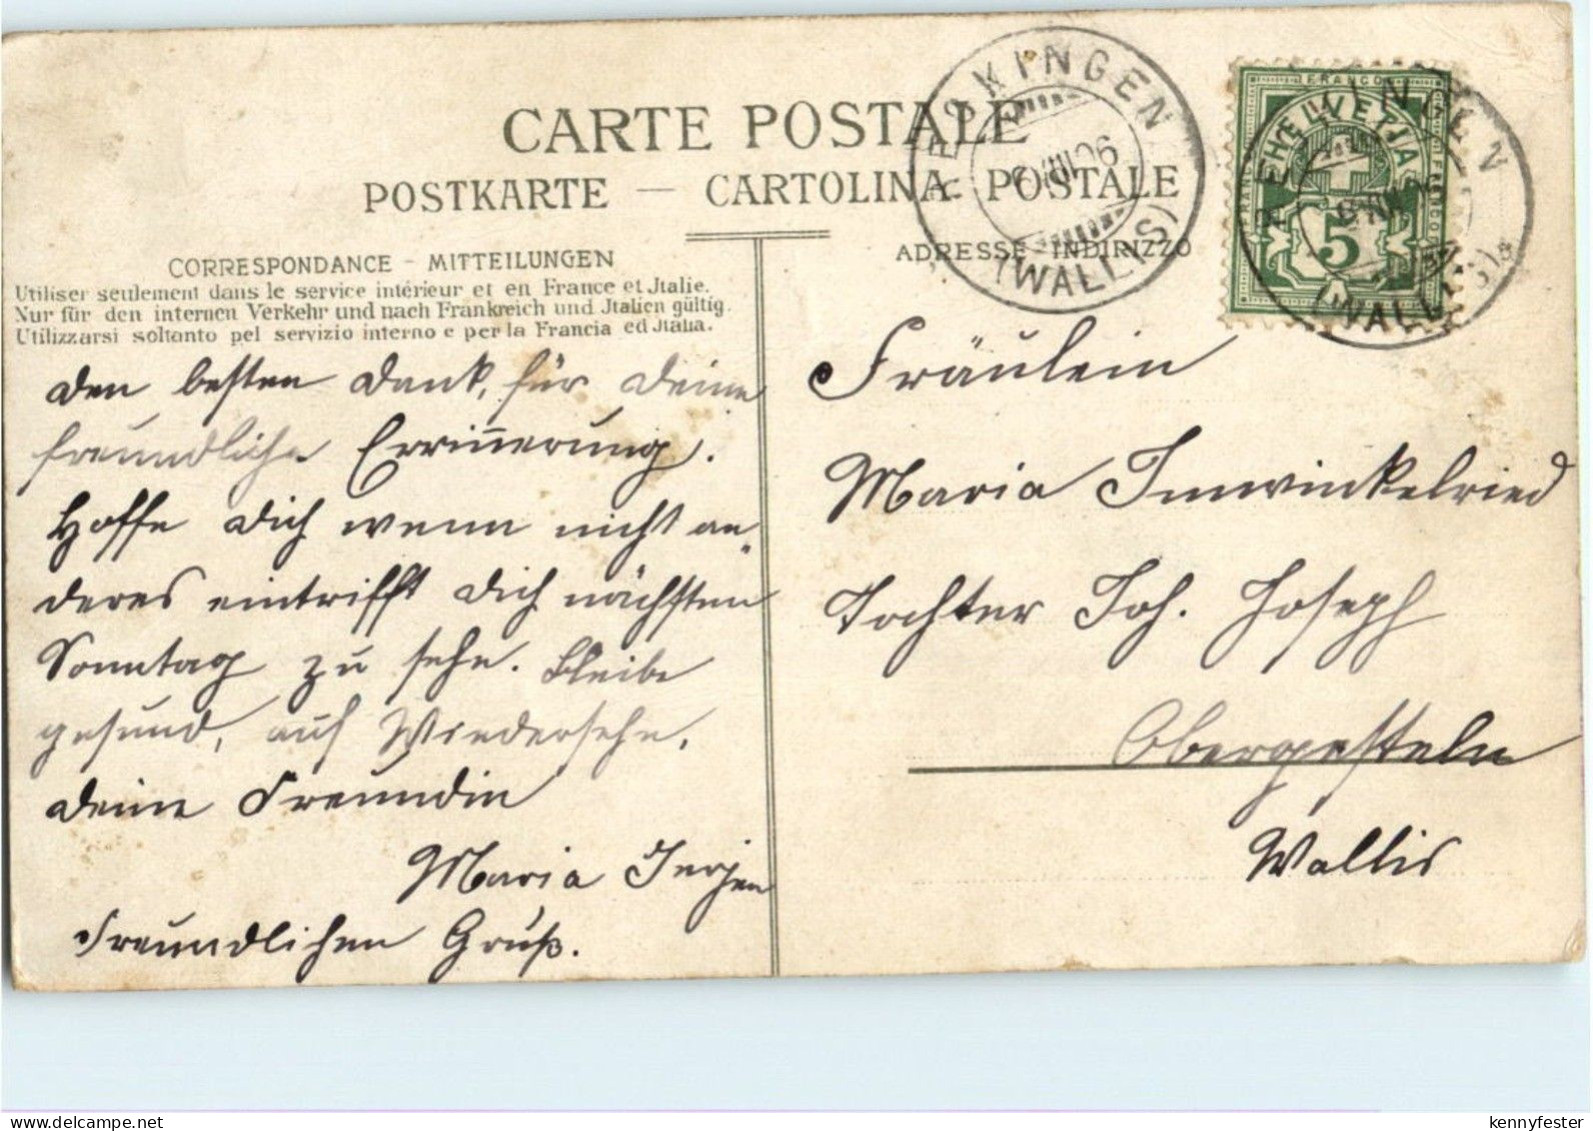 CARTE POSTALE
POSTKARTE — CARTOLINA POSTALE
CORRESPONDANCE - MITTEILUNGEN
Utiliser seulement dans le service intérieur et en France et Jtalie.
Nur für den internen Verkehr und nach Frankreich und Jtalien gültig.
Utilizzarsi soltanto pel servizio interno e per la Francia ed Jtalia.
den besten Dank, für deine
freundliche Errinnerung.
Hoffe dich wenn nicht an„
deres eintrifft dich nächsten
Sonntag zu sehn. Bleibe
gesund, auf Wiedersehn.
deine Freundin
Maria Jerjen
Freundlichen Gruß.
ADRESSE - INDIRIZZO
Fräulein
Maria Imwinkelried
Tochter Joh. Joseph
Obergesteln
Wallis
RECKINGEN
VIII 06
(WALLIS)
FRANCO
HELVETIA
5
(WALLIS)
kennyfester